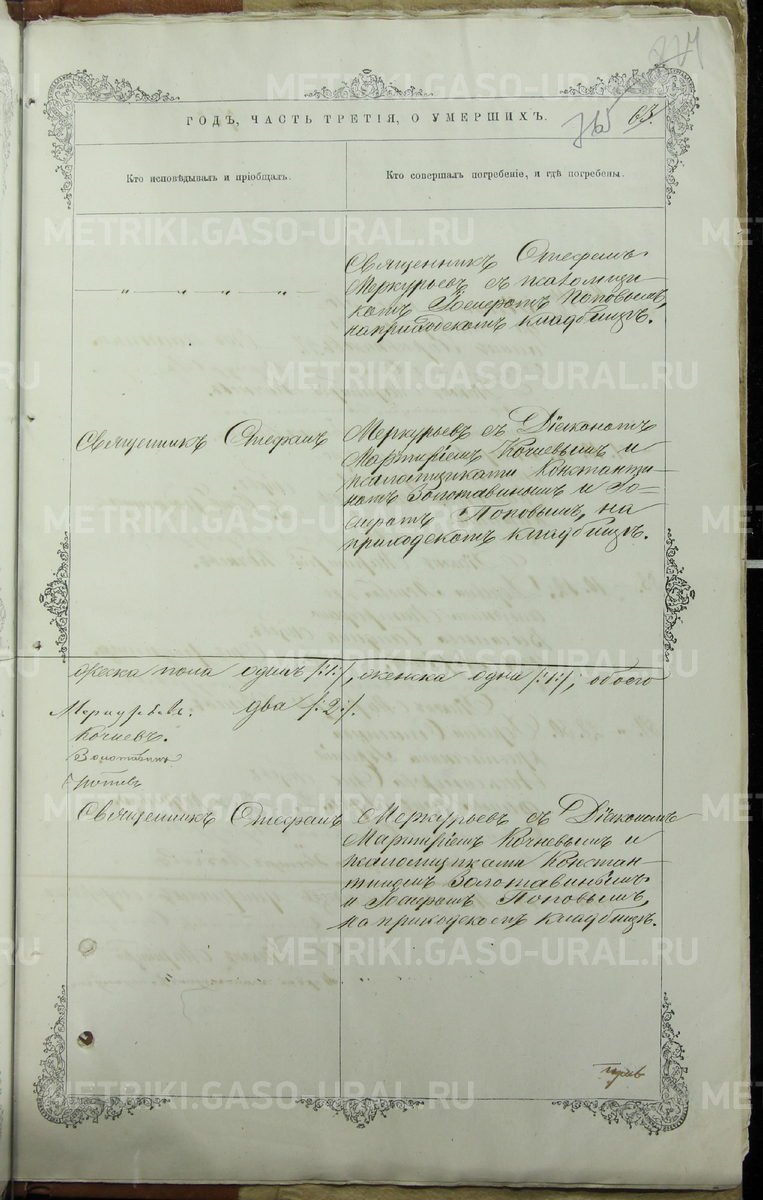 ГОДЪ, ЧАСТЬ ТРЕТІЯ, О УМЕРШИХЪ.
63.
Кто исповѣдывалъ и пріобщалъ.
Кто совершалъ погребеніе, и гдѣ погребены.
Священникъ Стефанъ
Меркурьевъ съ псаломщи-
комъ Поповымъ,
на приходскомъ кладбищѣ.
Священникъ Стефанъ
Меркурьевъ съ Діакономъ
Мартиріемъ Кочневымъ и
псаломщиками Константи-
номъ Золотавинымъ и
Поповымъ, на
приходскомъ кладбищѣ.
жеска пола одинъ /:1:/, женска одна /:1:/, обоего
два /:2:/.
Меркурьевъ.
Кочневъ.
Золотавинъ
Поповъ
Священникъ Стефанъ
Меркурьевъ съ Діакономъ
Мартиріемъ Кочневымъ и
псаломщиками Констан-
тиномъ Золотавинымъ
и Поповымъ,
на приходскомъ кладбищѣ.
METRIKI.GASO-URAL.RU